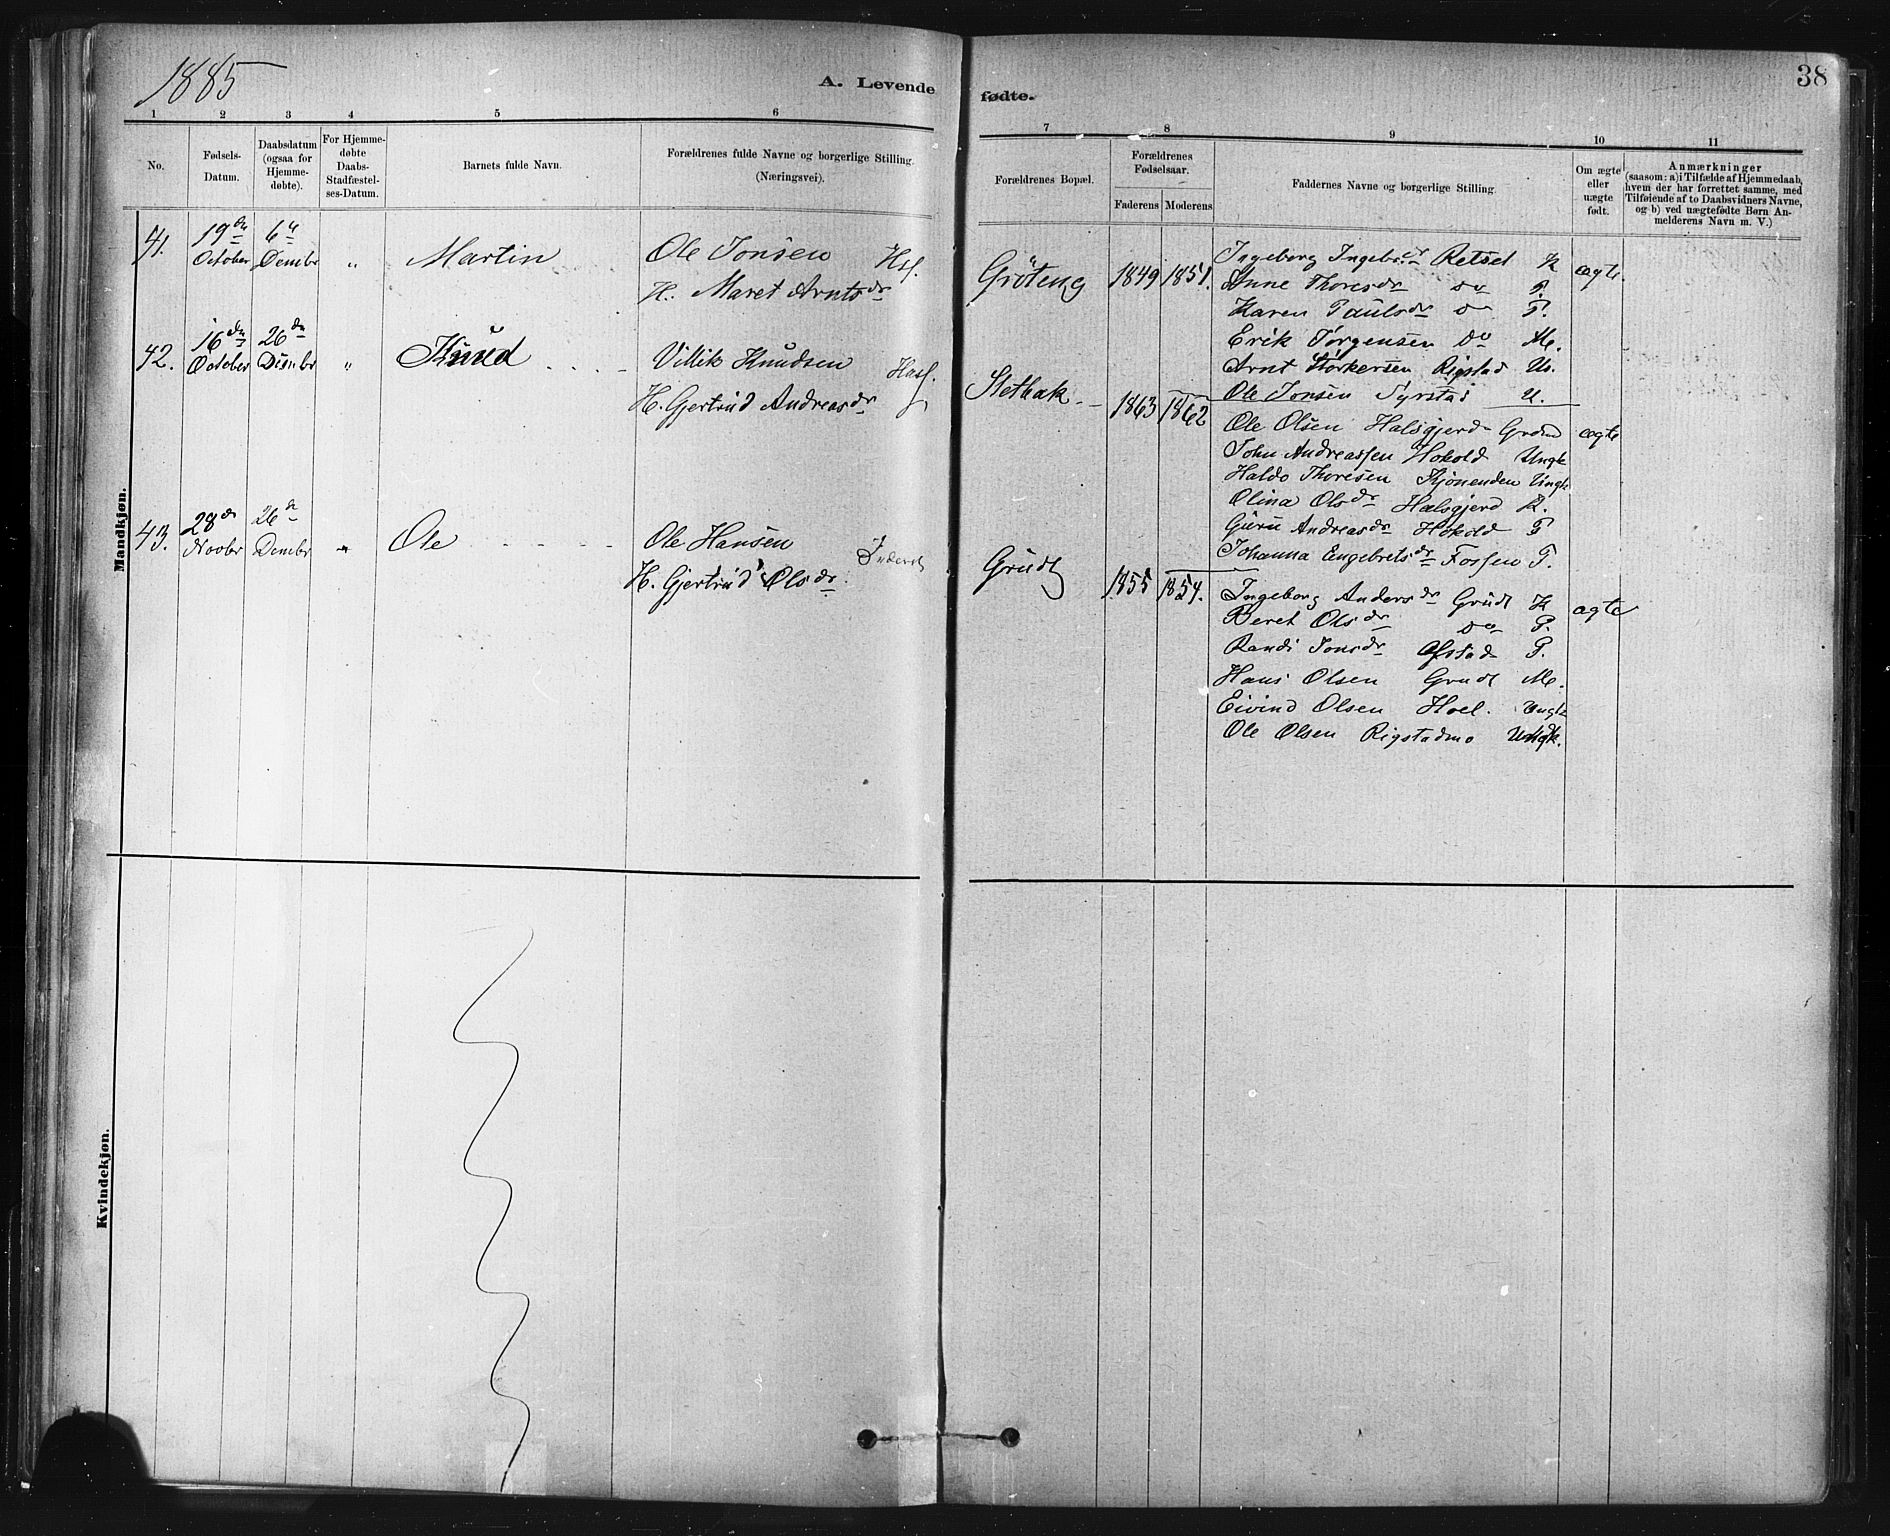 1885
A. Levende fødte.
38
1 2 3 4 5 6 7 8 9 10 11
No.
Fødsels-
Datum.
Daabsdatum
(ogsaa for
Hjemme-
døbte).
For Hjemme-
døbte
Daabs-
Stadfæstel-
ses-Datum.
Barnets fulde Navn.
Forældrenes fulde Navne og borgerlige Stilling.
(Næringsvei).
Forældrenes Bopæl.
Forældrenes
Fødselsaar.
Faderens Moderens
Faddernes Navne og borgerlige Stilling.
Om ægte
eller
uægte
født.
Anmærkninger
(saasom: a) i Tilfælde af Hjemmedaab,
hvem der har forrettet samme, med
Tilføiende af to Daabsvidners Navne,
og b) ved uægtefødte Børn An-
melderens Navn m. V.)
Mandkjøn.
41.
19de
October
6te
Dembr
"
Martin
Ole Jonsen
H. Maret Arntsdr
Hsf.
Gröteng
1849 1851.
Ingeborg Ingebrdr Retset K
Anne Thoresdr do P.
Karen Paulsdr do P.
Erik Jörgensen Do M.
Arnt Störkersen Rigstad U.
Ole Jonsen Syrstad U.
ægte
42.
16de
October
26de
Dembr
"
Knud
Villik Knudsen
H. Gjertrud Andreasdr
Husf.
Stetbak
1863 1862
Ole Olsen Halsgjerd Grdmd
John Andreassen Hokold Ungk
Haldo Thoresen Stjönenden Ungk
Olina Olsdr Halsgjerd K.
Guru Andreasdr Hokold P
Johanna Engebretsdr Fossen P.
ægte
43.
28de
Novbr
26de
Dembr
"
Ole
Ole Hansen
H. Gjertrud Olsdr.
Inderst
Grudt
1855 1854.
Ingeborg Andersdr Grudt K
Beret Olsdr Do P.
Randi Jonsdr Ofstad P.
Hans Olsen Grudt M.
Eivind Olsen Hoel. Ungk
Ole Olsen Rigstadmo Ungk.
ægte
Kvindekjøn.